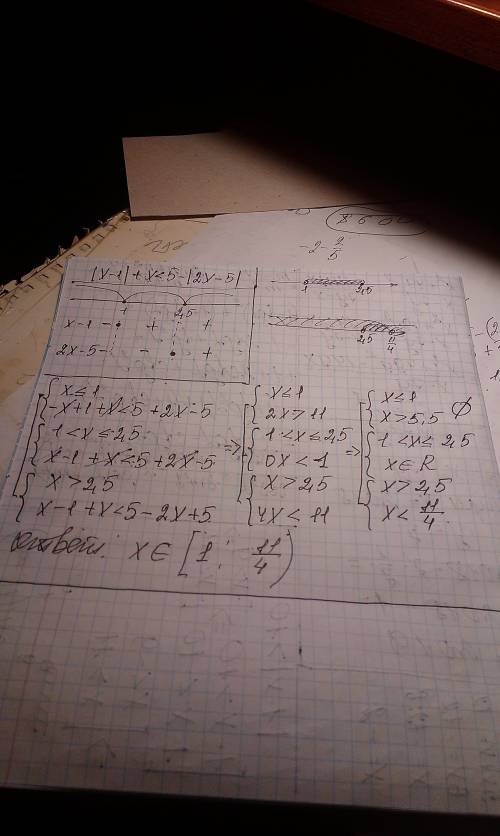 8600
-2-2/5
|x-1|+x<5-|2x-5|
1 2,5
1 2,5
x-1 - + +
2x-5 - - +
2,5 11/4
{ x≤1
-x+1+x<5+2x-5
{ 1<x≤2,5
x-1+x<5+2x-5
{ x>2,5
x-1+x<5-2x+5
=>
{ x<1
2x>11
{ 1<x≤2,5
0x<1
{ x>2,5
4x<11
=>
{ x<1
x>5,5 ∅
{ 1<x≤2,5
x∈R
{ x>2,5
x<11/4
ответ: x∈[1; 11/4)